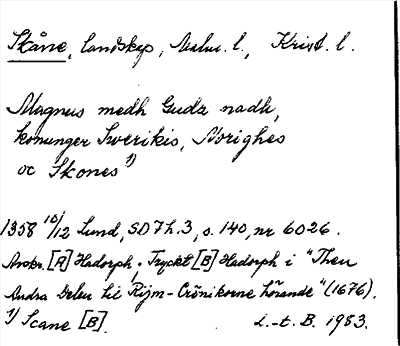 Skåne, landskap, Malm. l., Krist. l.
Magnus medh Gudz nadh,
konunger Swerikis, Norighes
oc Skones 1)
1358 10/12 Lund, SD 7 h.3, s. 140, nr 6026.
Avskr. [A] Hadorph. Tryckt [B] Hadorph i "Then
Andra Delen til Rijm-Crönikorne hörande" (1676).
1) Scane [B]. L.-t. B. 1983.